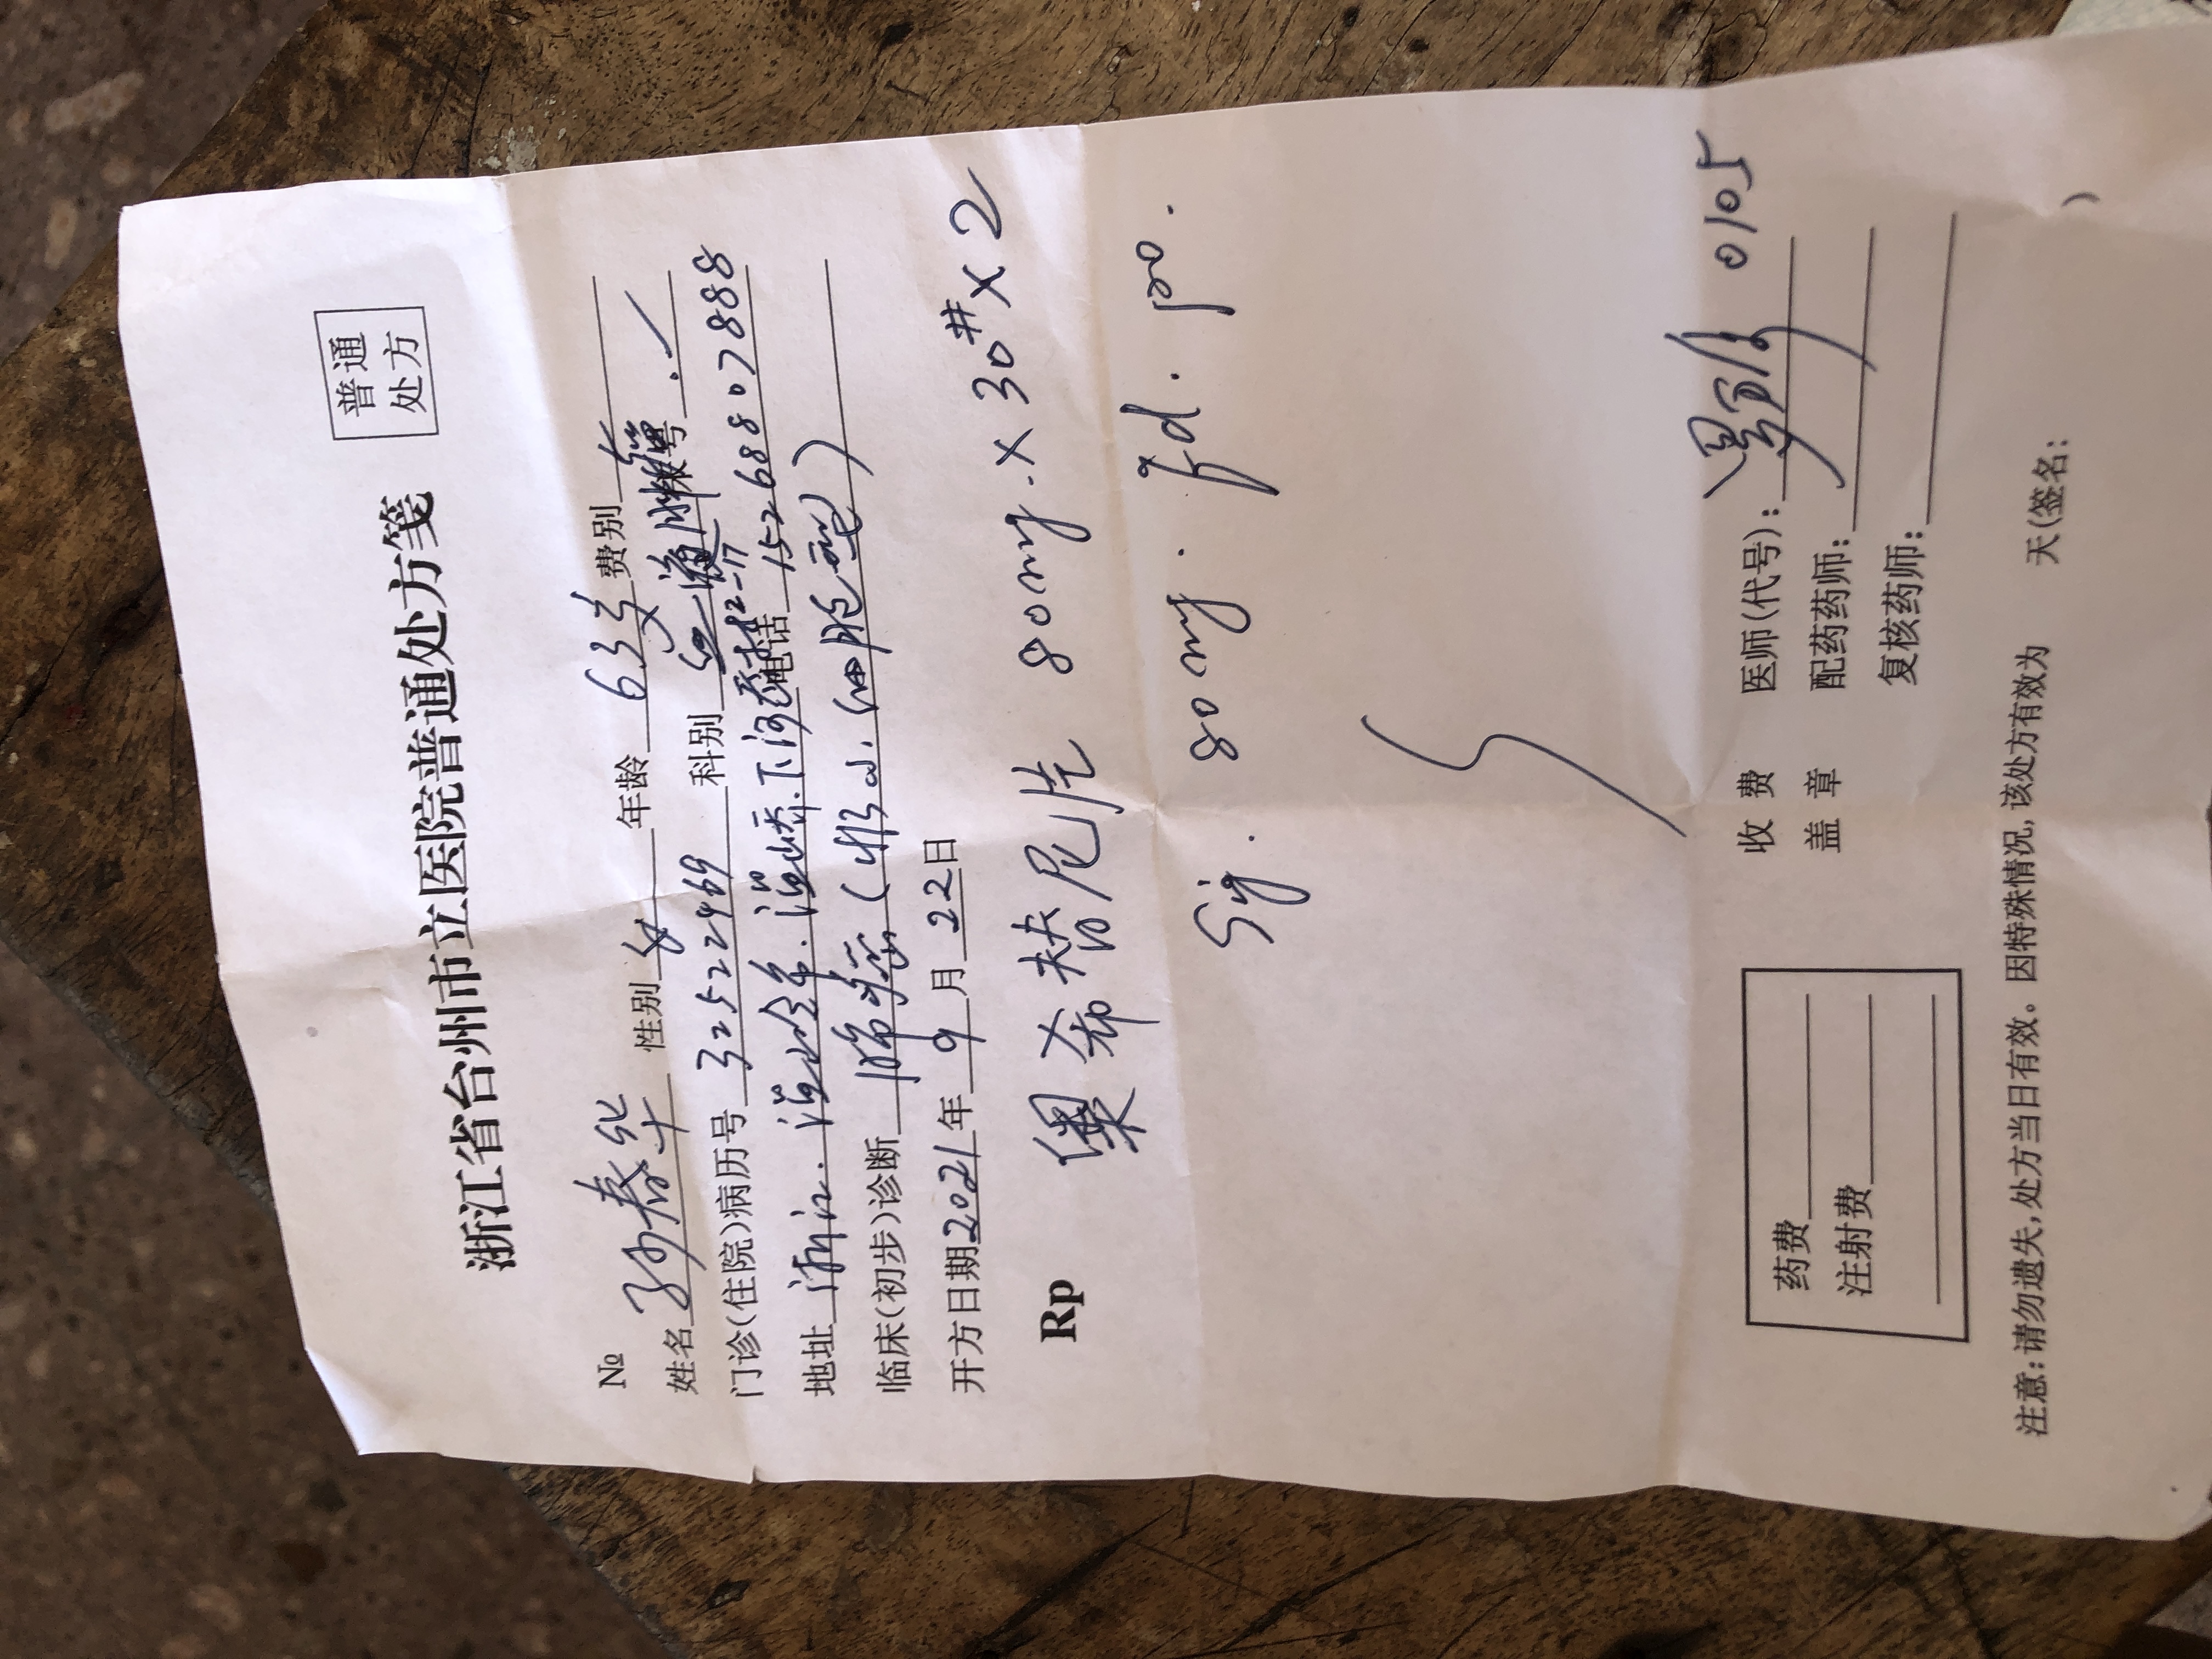 普通
处方
浙江省台州市立医院普通处方笺
№
姓名 孙春华 性别 女 年龄 63岁 费别
门诊(住院)病历号 32522469 科别 号
地址 浙江.温岭市.温峤.下河 村2-17 电话 15268807888
临床(初步)诊断 肺癌(非小细胞型)
开方日期 2021 年 9 月 22 日
Rp 奥希替尼片 80mg.×30#×2
Sig. 80mg. qd. po.
药费
注射费
收费
盖章
医师(代号): 0105
配药药师:
复核药师:
注意:请勿遗失,处方当日有效。因特殊情况,该处方有效为 天(签名: )